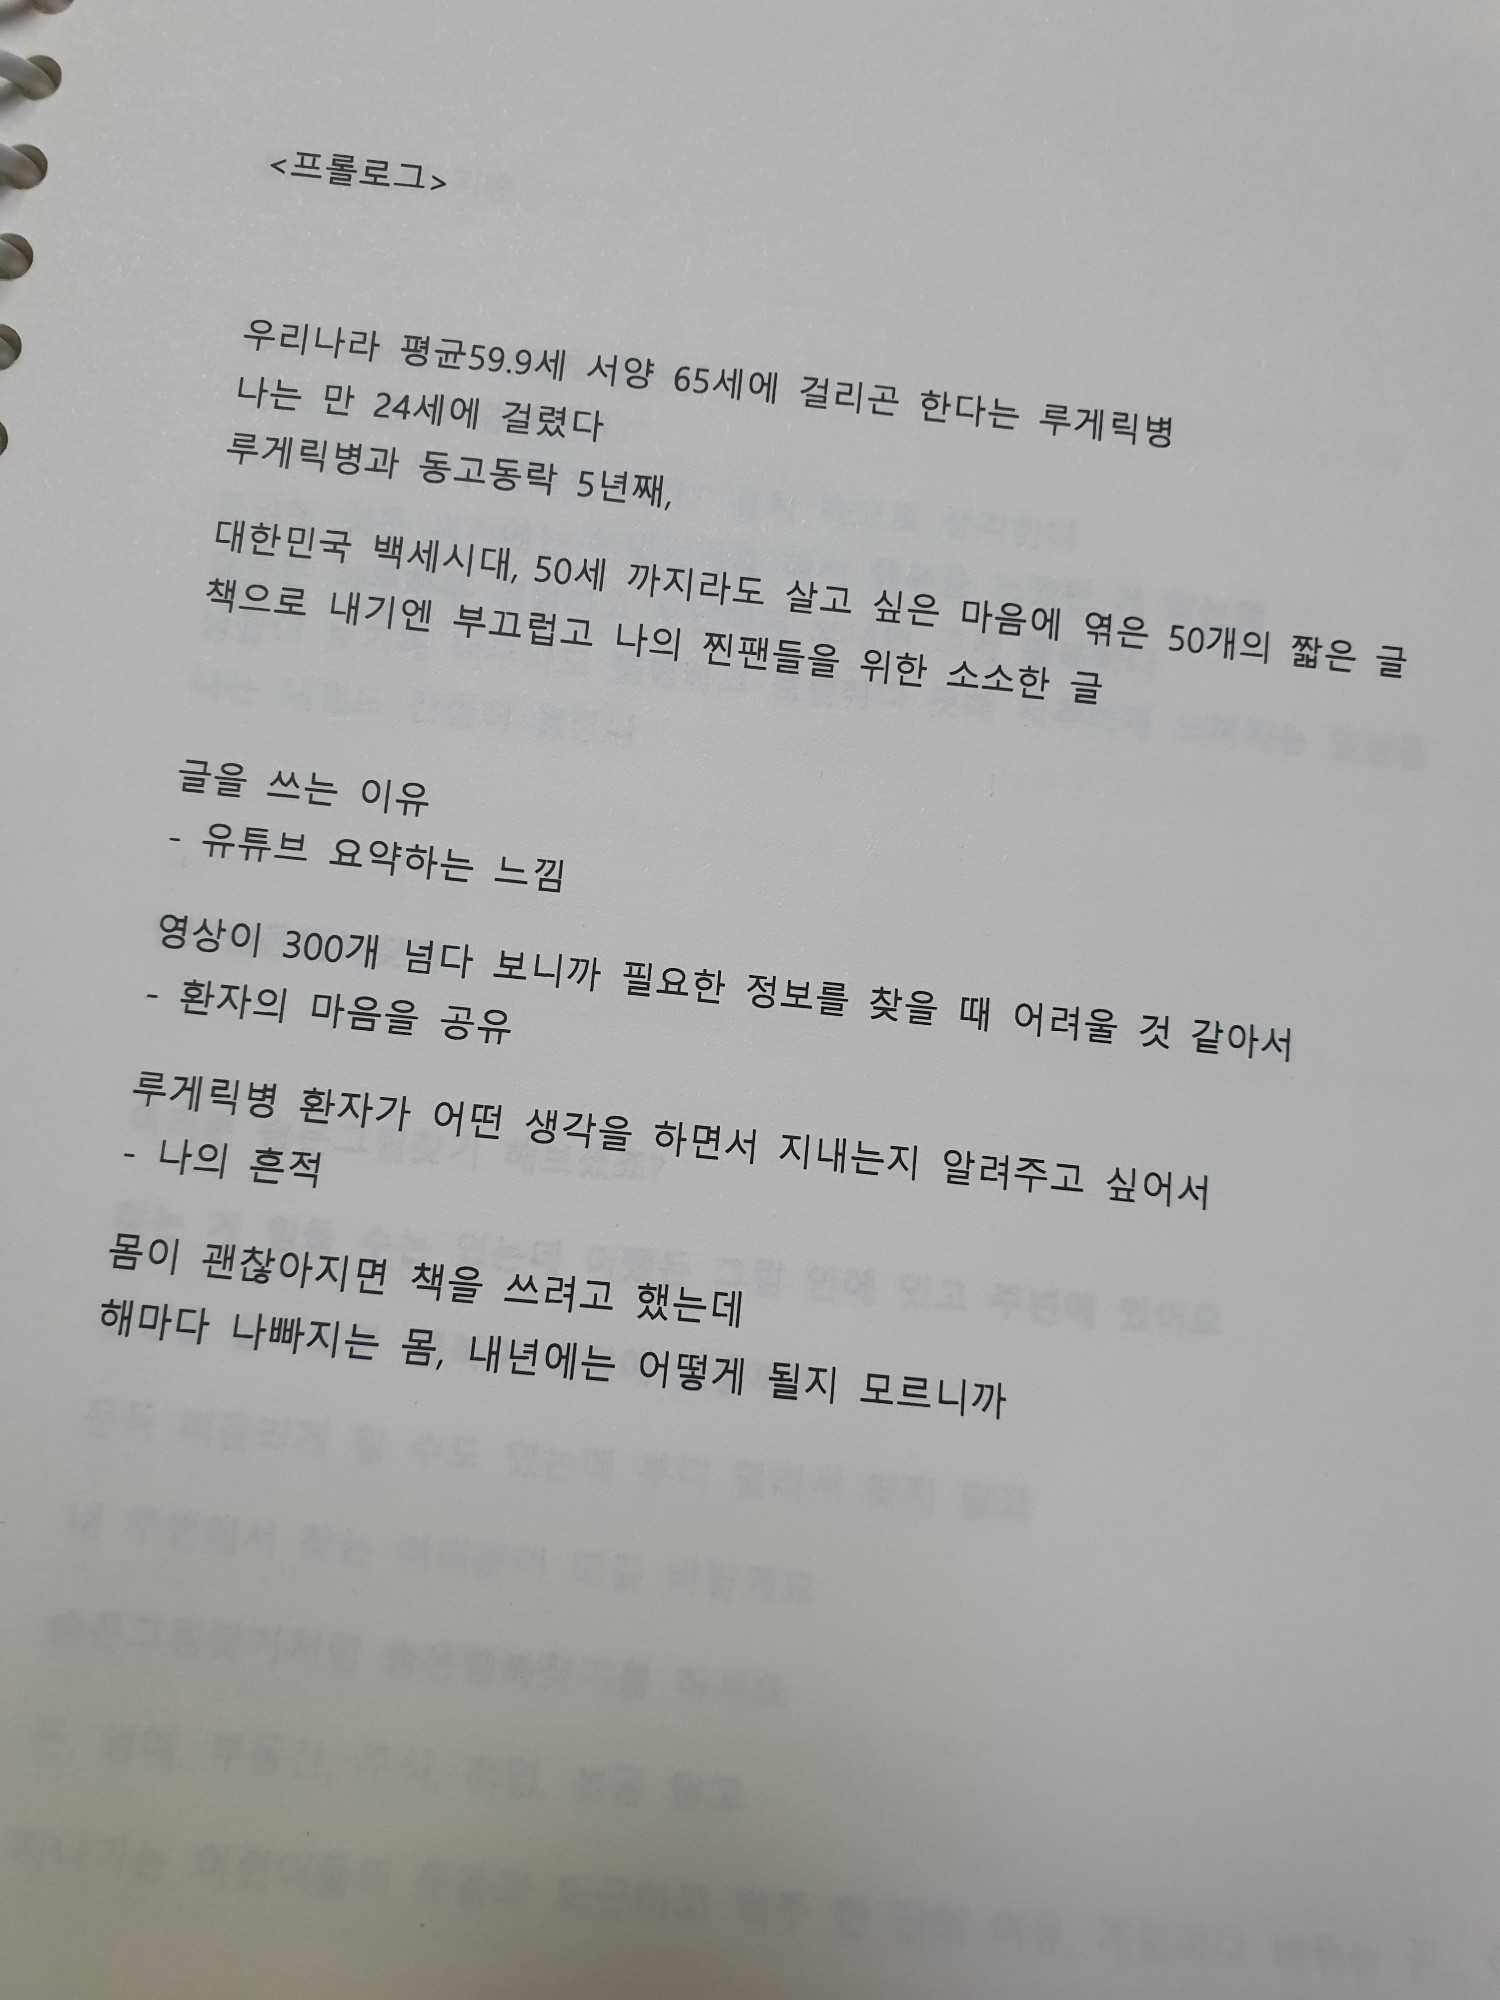 <프롤로그>
우리나라 평균59.9세 서양 65세에 걸리곤 한다는 루게릭병
나는 만 24세에 걸렸다
루게릭병과 동고동락 5년째,
대한민국 백세시대, 50세 까지라도 살고 싶은 마음에 엮은 50개의 짧은 글
책으로 내기엔 부끄럽고 나의 찐팬들을 위한 소소한 글
글을 쓰는 이유
- 유튜브 요약하는 느낌
영상이 300개 넘다 보니까 필요한 정보를 찾을 때 어려울 것 같아서
- 환자의 마음을 공유
루게릭병 환자가 어떤 생각을 하면서 지내는지 알려주고 싶어서
- 나의 흔적
몸이 괜찮아지면 책을 쓰려고 했는데
해마다 나빠지는 몸, 내년에는 어떻게 될지 모르니까